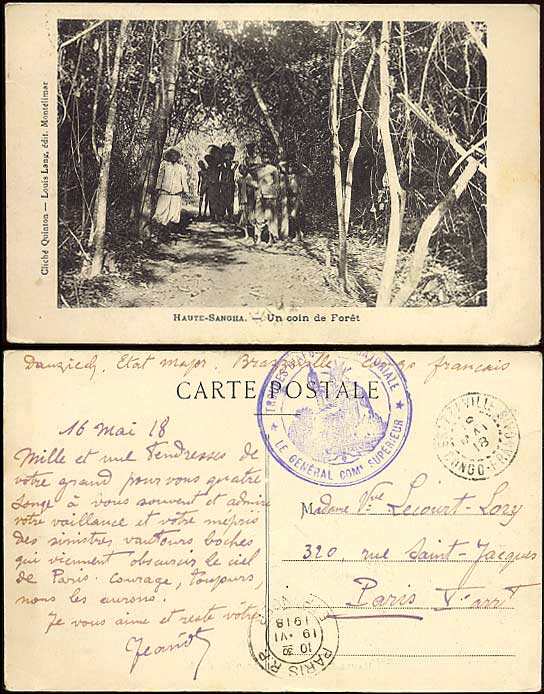 Cliché Quinton — Louis Lang, édit. Montélimar
HAUTE-SANGHA. — Un coin de Forêt
Etat major. Brazzaville Congo français
CARTE POSTALE
LE GÉNÉRAL COMᵗ SUPÉRIEUR
16 mai 18
Mille et une tendresses de
votre grand pour vous quatre
Songe à vous souvent et admire
votre vaillance et votre mépris
des sinistres vautours boches
qui viennent obscurcir le ciel
de Paris. Courage, toujours,
nous les aurons.
Je vous aime et reste votre
Madame Vve Lecourt-Lory
320, rue Saint-Jacques
Paris Vᵉ arrᵗ
10 30
19 • VI
1918
PARIS R.P.